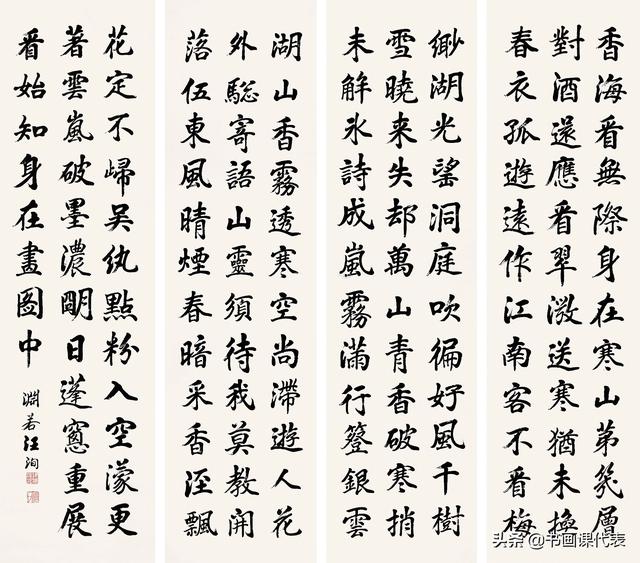 香海看無際身在寒山苐幾層
對酒還應看翠瀲送寒猶未換
春衣孤遊遠作江南客不看梅
緲湖光望洞庭吹徧好風千樹
雪曉来失却萬山青香破寒捎
未解氷詩成嵐霧滿行簦銀雲
湖山香霧透寒空尚滯遊人花
外驄寄語山靈須待我莫教開
落伍東風晴煙春暗采香涇飄
花定不歸吴紈點粉入空濛更
著雲嵐破墨濃明日蓬窻重展
看始知身在畫圖中
淵若汪洵
头条 @书画课代表